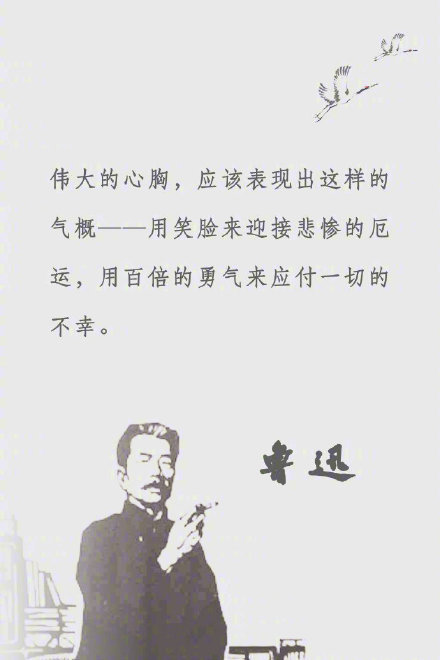 伟大的心胸，应该表现出这样的
气概——用笑脸来迎接悲惨的厄
运，用百倍的勇气来应付一切的
不幸。
鲁迅